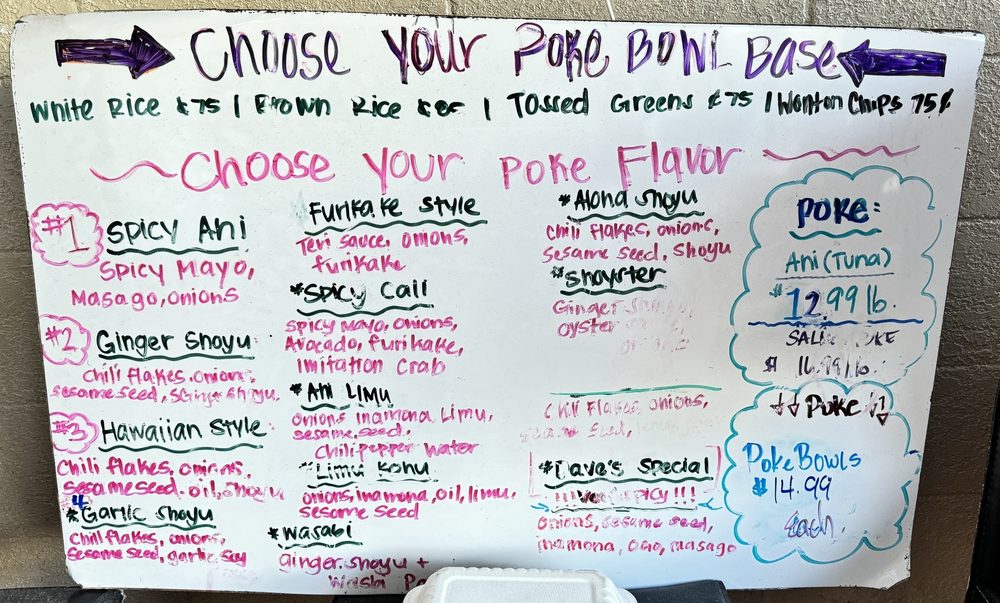 Choose Your Poke Bowl Base
White Rice ¢75 | Brown Rice | Tossed Greens ¢75 | Wonton Chips 75¢
Choose Your Poke Flavor
#1 Spicy Ahi
Spicy Mayo,
Masago, onions
#2 Ginger Shoyu
Chili flakes, onions,
sesame seed, Shoyu.
#3 Hawaiian Style
Chili flakes, onions,
Sesame seed. oil, Shoyu
*Garlic Shoyu
Chili flakes, onions,
sesame seed, garlic soy
Furikake Style
Teri Sauce, onions,
furikake
*Spicy Cali
Spicy Mayo, onions,
Avocado, furikake,
Imitation Crab
*Ahi Limu
Onions inamona Limu,
sesame seed,
Chili pepper water
*Limu Kohu
onions, inamona, oil, limu,
Sesame seed
*Wasabi
ginger shoyu +
*Aloha Shoyu
Chili flakes, onions,
Sesame seed, Shoyu
*Shoyster
Ginger
oyster
Flakes onions,
seed,
*Dave's Special
!!!Very Spicy!!!
onions, sesame seed,
inamona, ogo, masago
Poke:
Ahi (Tuna)
$12.99 lb.
$16.99 lb.
↓↓ Poke ↓↓
Poke Bowls
$14.99
each.